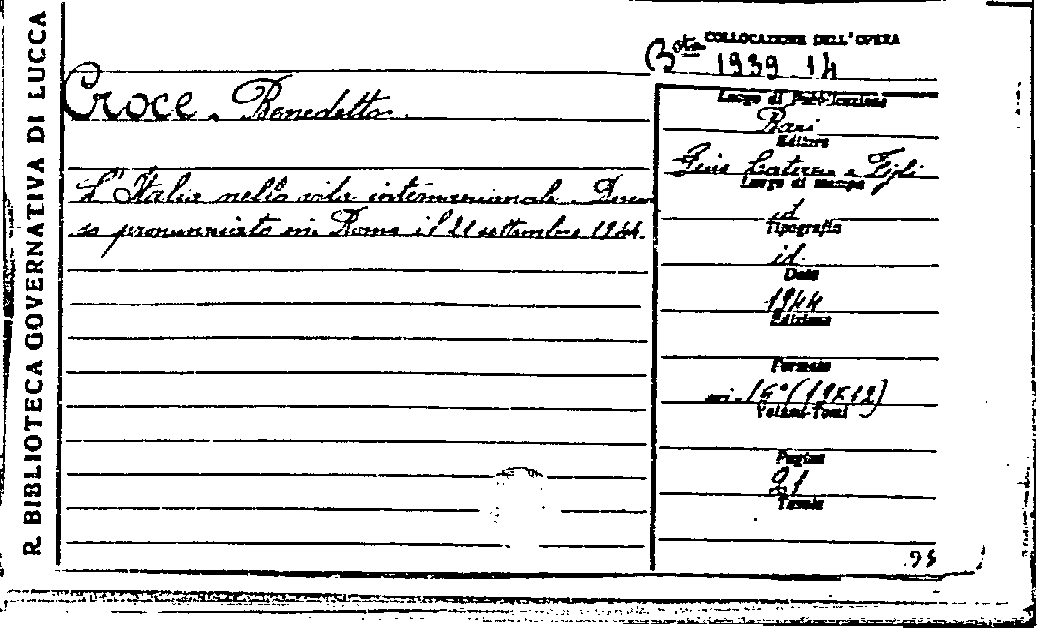 R. BIBLIOTECA GOVERNATIVA DI LUCCA
COLLOCAZIONE DELL'OPERA
Bta 1939 14
Croce, Benedetto.
L'Italia nella vita internazionale. Discor
so pronunciato in Roma il 21 settembre 1944.
Luogo di Pubblicazione
Bari
Editore
Gius Laterza e Figli
Luogo di stampa
id
Tipografia
id.
Data
1944
Edizione
Formato
in-16° (19x12)
Volumi-Tomi
Pagine
21
Tavole